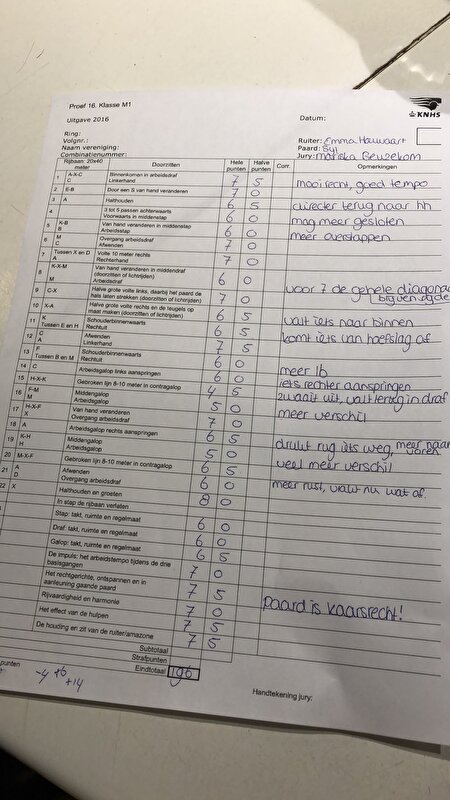 Proef 16. Klasse M1
KNHS
Uitgave 2016
Datum:
Ring:
Volgnr.:
Naam vereniging:
Combinatienummer:
Ruiter: Emma
Paard: Syl
Jury: Mariska Beuzekom
Rijbaan: 20x40 meter Doorzitten Hele punten Halve punten Corr. Opmerkingen
1 A-X-C C Binnenkomen in arbeidsdraf Linkerhand 7 5 mooi recht, goed tempo
2 E-B Door een S van hand veranderen 7 0
3 A Halthouden 6 5 directer terug naar hh
4 3 tot 5 passen achterwaarts Voorwaarts in middenstap 6 0 mag meer gesloten
5 K-B B Van hand veranderen in middenstap Arbeidsstap 6 0 meer overstappen
6 M C Overgang arbeidsdraf Afwenden 7 0
7 Tussen X en D A Volte 10 meter rechts Rechterhand 7 0
8 K-X-M M Van hand veranderen in middendraf (doorzitten of lichtrijden) Arbeidsdraf 6 0 voor 7 de gehele diagonaal
9 C-X Halve grote volte links, daarbij het paard de hals laten strekken (doorzitten of lichtrijden) 7 0
10 X-A Halve grote volte rechts en de teugels op maat maken (doorzitten of lichtrijden) 6 5 valt iets naar binnen
11 K Tussen E en H Schouderbinnenwaarts Rechtuit 6 5 komt iets van hoefslag af
12 C A Afwenden Linkerhand 7 5
13 F Tussen B en M Schouderbinnenwaarts Rechtuit 6 0
14 C Arbeidsgalop links aanspringen 6 0 meer lb
15 H-X-K Gebroken lijn 8-10 meter in contragalop 4 5 iets rechter aanspringen
16 F-M M Middengalop Arbeidsgalop 5 0 zwaait uit, valt terug in draf
17 H-X-F Van hand veranderen Overgang arbeidsdraf 7 0 meer verschil
18 A Arbeidsgalop rechts aanspringen 6 5
19 K-H H Middengalop Arbeidsgalop 5 0 drukt rug iets weg, meer naar voren
20 M-X-F Gebroken lijn 8-10 meter in contragalop 6 5 veel meer verschil
21 A D Afwenden Overgang arbeidsdraf 6 0
22 X Halthouden en groeten 8 0 meer rust, wijkt nu wat af.
In stap de rijbaan verlaten
Stap: takt, ruimte en regelmaat 6 0
Draf: takt, ruimte en regelmaat 6 0
Galop: takt, ruimte en regelmaat 6 5
De impuls: het arbeidstempo tijdens de drie basisgangen 7 0
Het rechtgerichte, ontspannen en in aanleuning gaande paard 7 5
Rijvaardigheid en harmonie 7 0 paard is kaarsrecht!
Het effect van de hulpen 7 5
De houding en zit van de ruiter/amazone 7 5
Subtotaal
Strafpunten
punten Eindtotaal 196
-4 +6
+14
Handtekening jury: